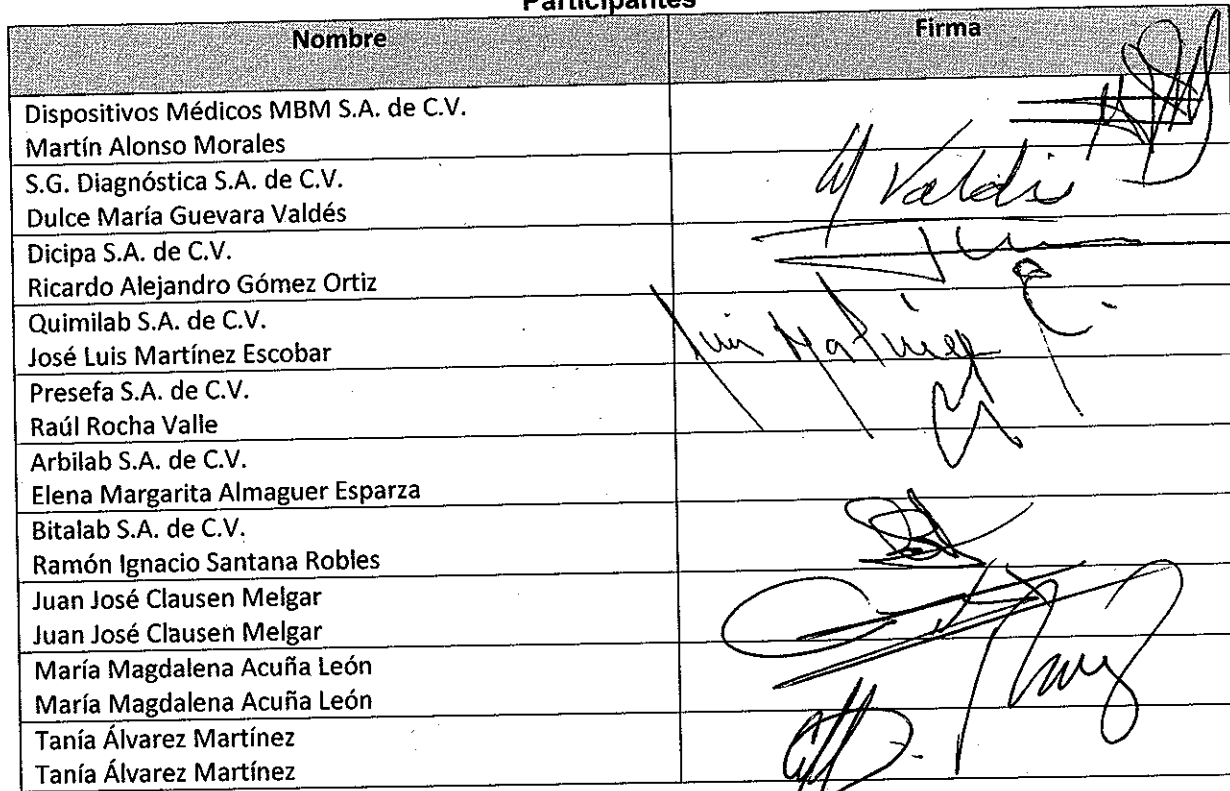 Participantes
Nombre Firma
Dispositivos Médicos MBM S.A. de C.V.
Martín Alonso Morales
S.G. Diagnóstica S.A. de C.V.
Dulce María Guevara Valdés
Valdés
Dicipa S.A. de C.V.
Ricardo Alejandro Gómez Ortiz
Quimilab S.A. de C.V.
José Luis Martínez Escobar
Luis Martínez E.
Presefa S.A. de C.V.
Raúl Rocha Valle
Arbilab S.A. de C.V.
Elena Margarita Almaguer Esparza
Bitalab S.A. de C.V.
Ramón Ignacio Santana Robles
Juan José Clausen Melgar
Juan José Clausen Melgar
María Magdalena Acuña León
María Magdalena Acuña León
Tanía Álvarez Martínez
Tanía Álvarez Martínez